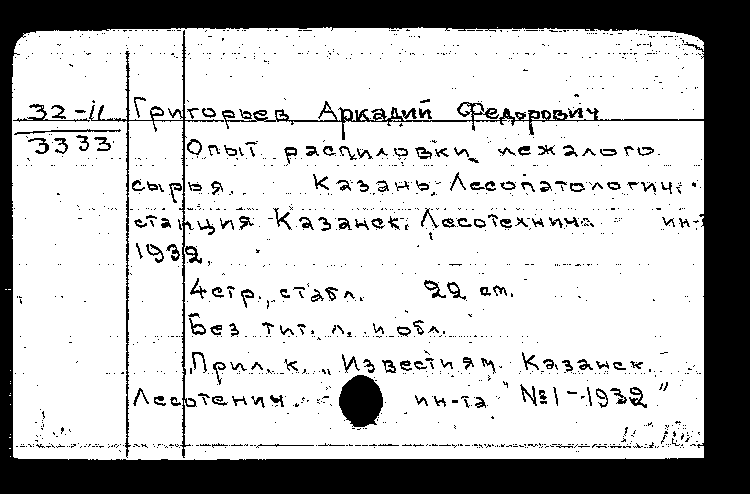 32-II Григорьев, Аркадий Федорович
3333 Опыт распиловки лежалого
сырья. Казань, Лесопатологич.
станция Казанск. Лесотехнич. ин-т
1932.
4 стр., с табл. 22 см.
Без тит. л. и обл.
Прил. к. „Известиям Казанск.
Лесотенич. ин-та "№1-1932"